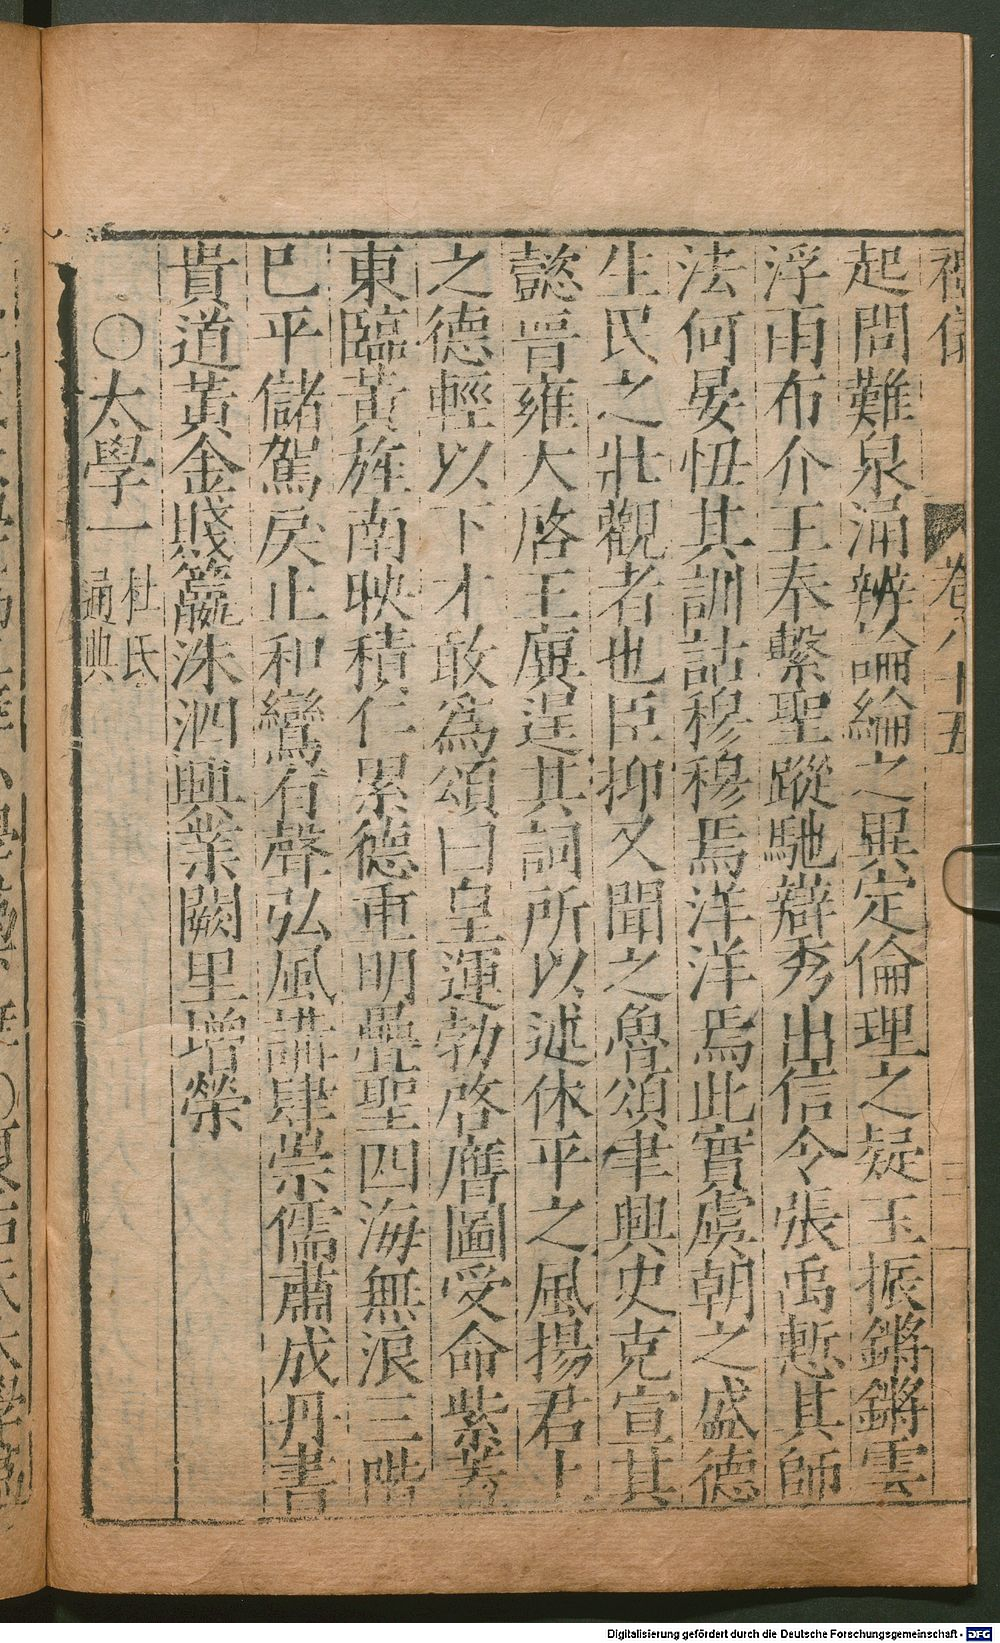 卷八十五
起問難泉涌辨論綸之異定倫理之疑玉振鏘鏘雲
浮雨布介王奉繫聖蹤馳辯秀出信令張禹慙其師
法何晏忸其訓詁穆穆焉洋洋焉此實虞朝之盛德
生民之壯觀者也臣抑又聞之魯頌聿興史克宣其
懿晉雍大啓王廙逞其詞所以述休平之風揚君上
之德輕以下才敢爲頌曰皇運勃啓膺圖受命紫蓋
東臨黃旌南映積仁累德重明疊聖四海無浪三階
已平儲駕戾止和鸞有聲弘風講肆崇儒肅成丹書
貴道黃金賤籯洙泗興業闕里增榮
〇太學一 杜氏通典
Digitalisierung gefördert durch die Deutsche Forschungsgemeinschaft - DFG